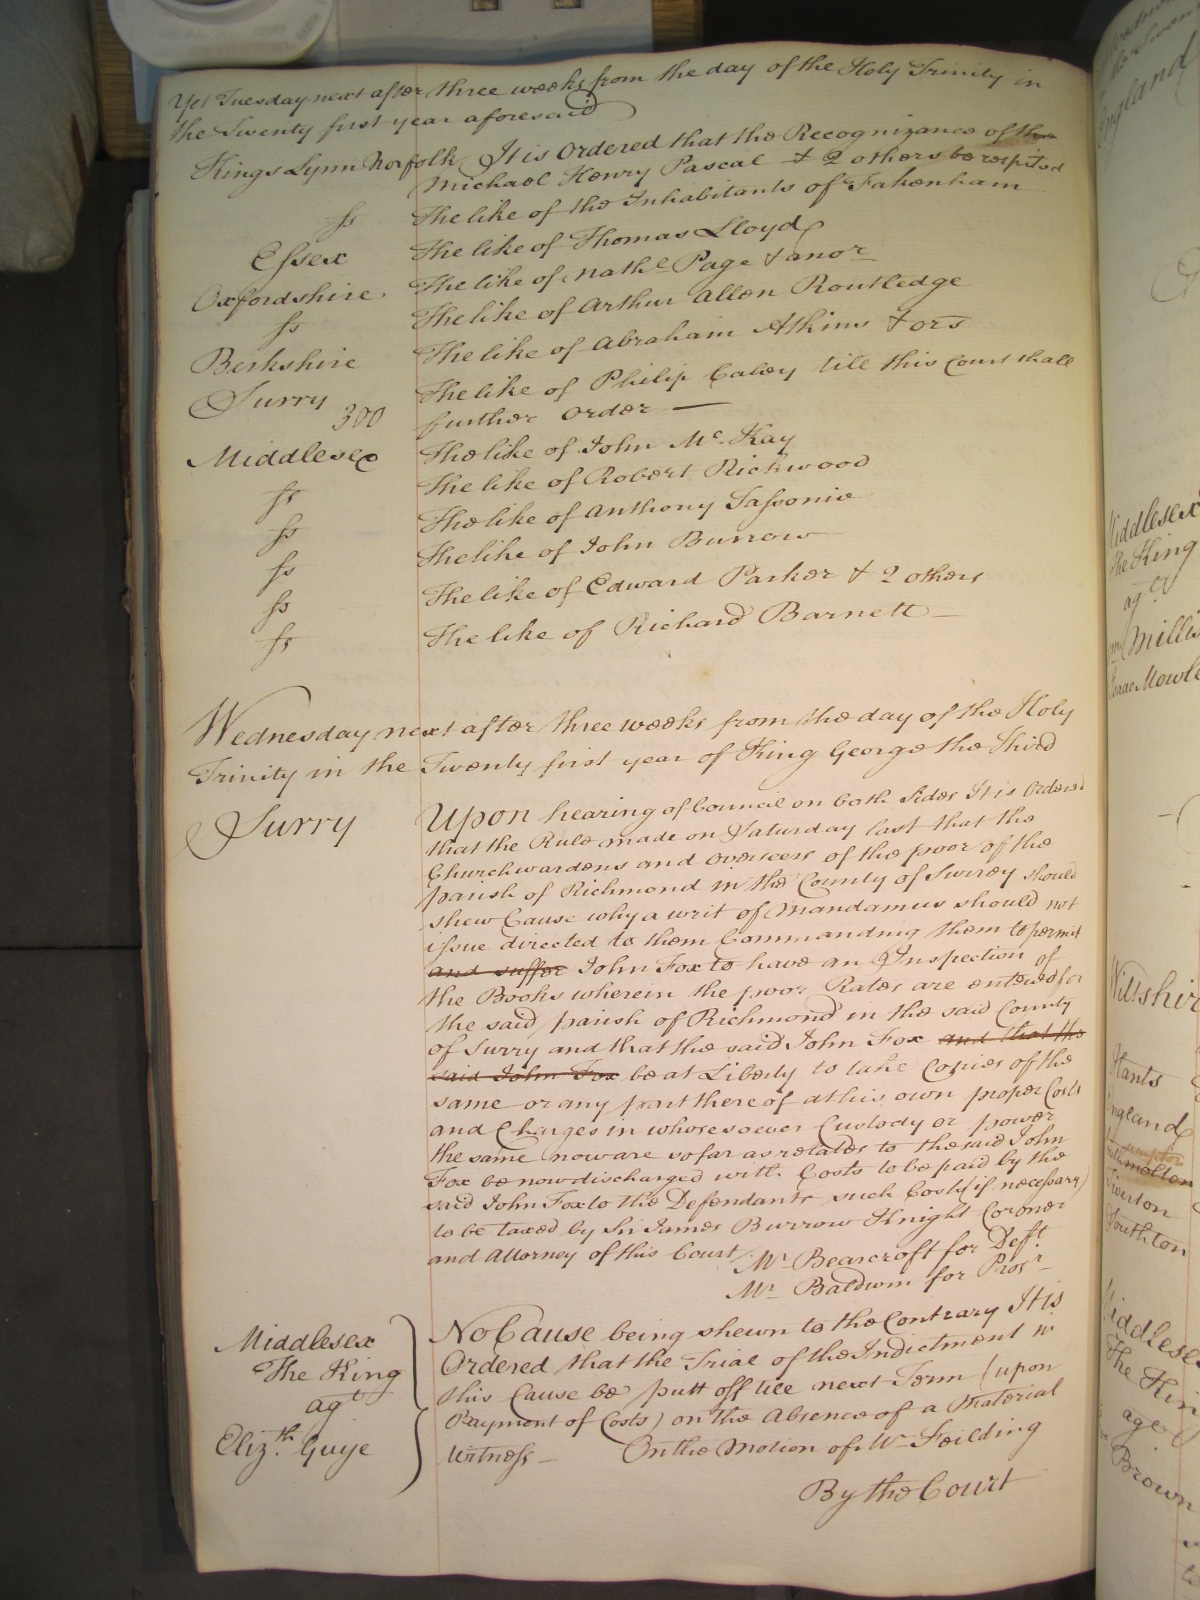 Yet Tuesday next after three weeks from the day of the Holy Trinity in
the Twenty first year aforesaid
Kings Lynn Norfolk It is Ordered that the Recognizance of the
Michael Henry Pascal & 2 others be respited
ss The like of the Inhabitants of Fakenham
Essex The like of Thomas Lloyd
Oxfordshire The like of Nathl Page & anor
ss The like of Arthur Allen Routledge
Berkshire The like of Abraham Atkins & ors
Surry The like of Philip Caley till this Court shall
300 further Order
Middlesex The like of John Mc Kay
ss The like of Robert Rickwood
ss The like of Anthony Sassonie
ss The like of John Burrow
ss The like of Edward Parker & 2 others
ss The like of Richard Barnett
Wednesday next after three weeks from the day of the Holy
Trinity in the Twenty first year of King George the Third
Surry Upon hearing of Council on both Sides It is Ordered
that the Rule made on Saturday last that the
Churchwardens and overseers of the poor of the
parish of Richmond in the County of Surrey should
shew Cause why a writ of Mandamus should not
issue directed to them Commanding them to permit
and suffer John Fox to have an Inspection of
the Books wherein the poor Rates are entered for
the said parish of Richmond in the said County
of Surry and that the said John Fox and that the
said John Fox be at Liberty to take Copies of the
same or any part thereof at his own proper Costs
and Charges in whosesoever Custody or power
the same now are so far as relates to the said John
Fox be now discharged with Costs to be paid by the
said John Fox to the Defendants such Costs (if necessary)
to be taxed by Sir James Burrow Knight Coroner
and Attorney of this Court
Mr Bearcroft for Deft
Mr Baldwin for Prosr
Middlesex No Cause being shewn to the Contrary It is
The King Ordered that the Trial of the Indictment in
agt this Cause be putt off till next Term (upon
Payment of Costs) on the Absence of a Material
Elizth Guye Witness On the Motion of Mr Feilding
By the Court
England
Middlesex
The King
agt
Mills
Isaac Mowle
Wiltshire
Hants
England
Tiverton
Southton
Middlesex
The Kin
agt
Brown